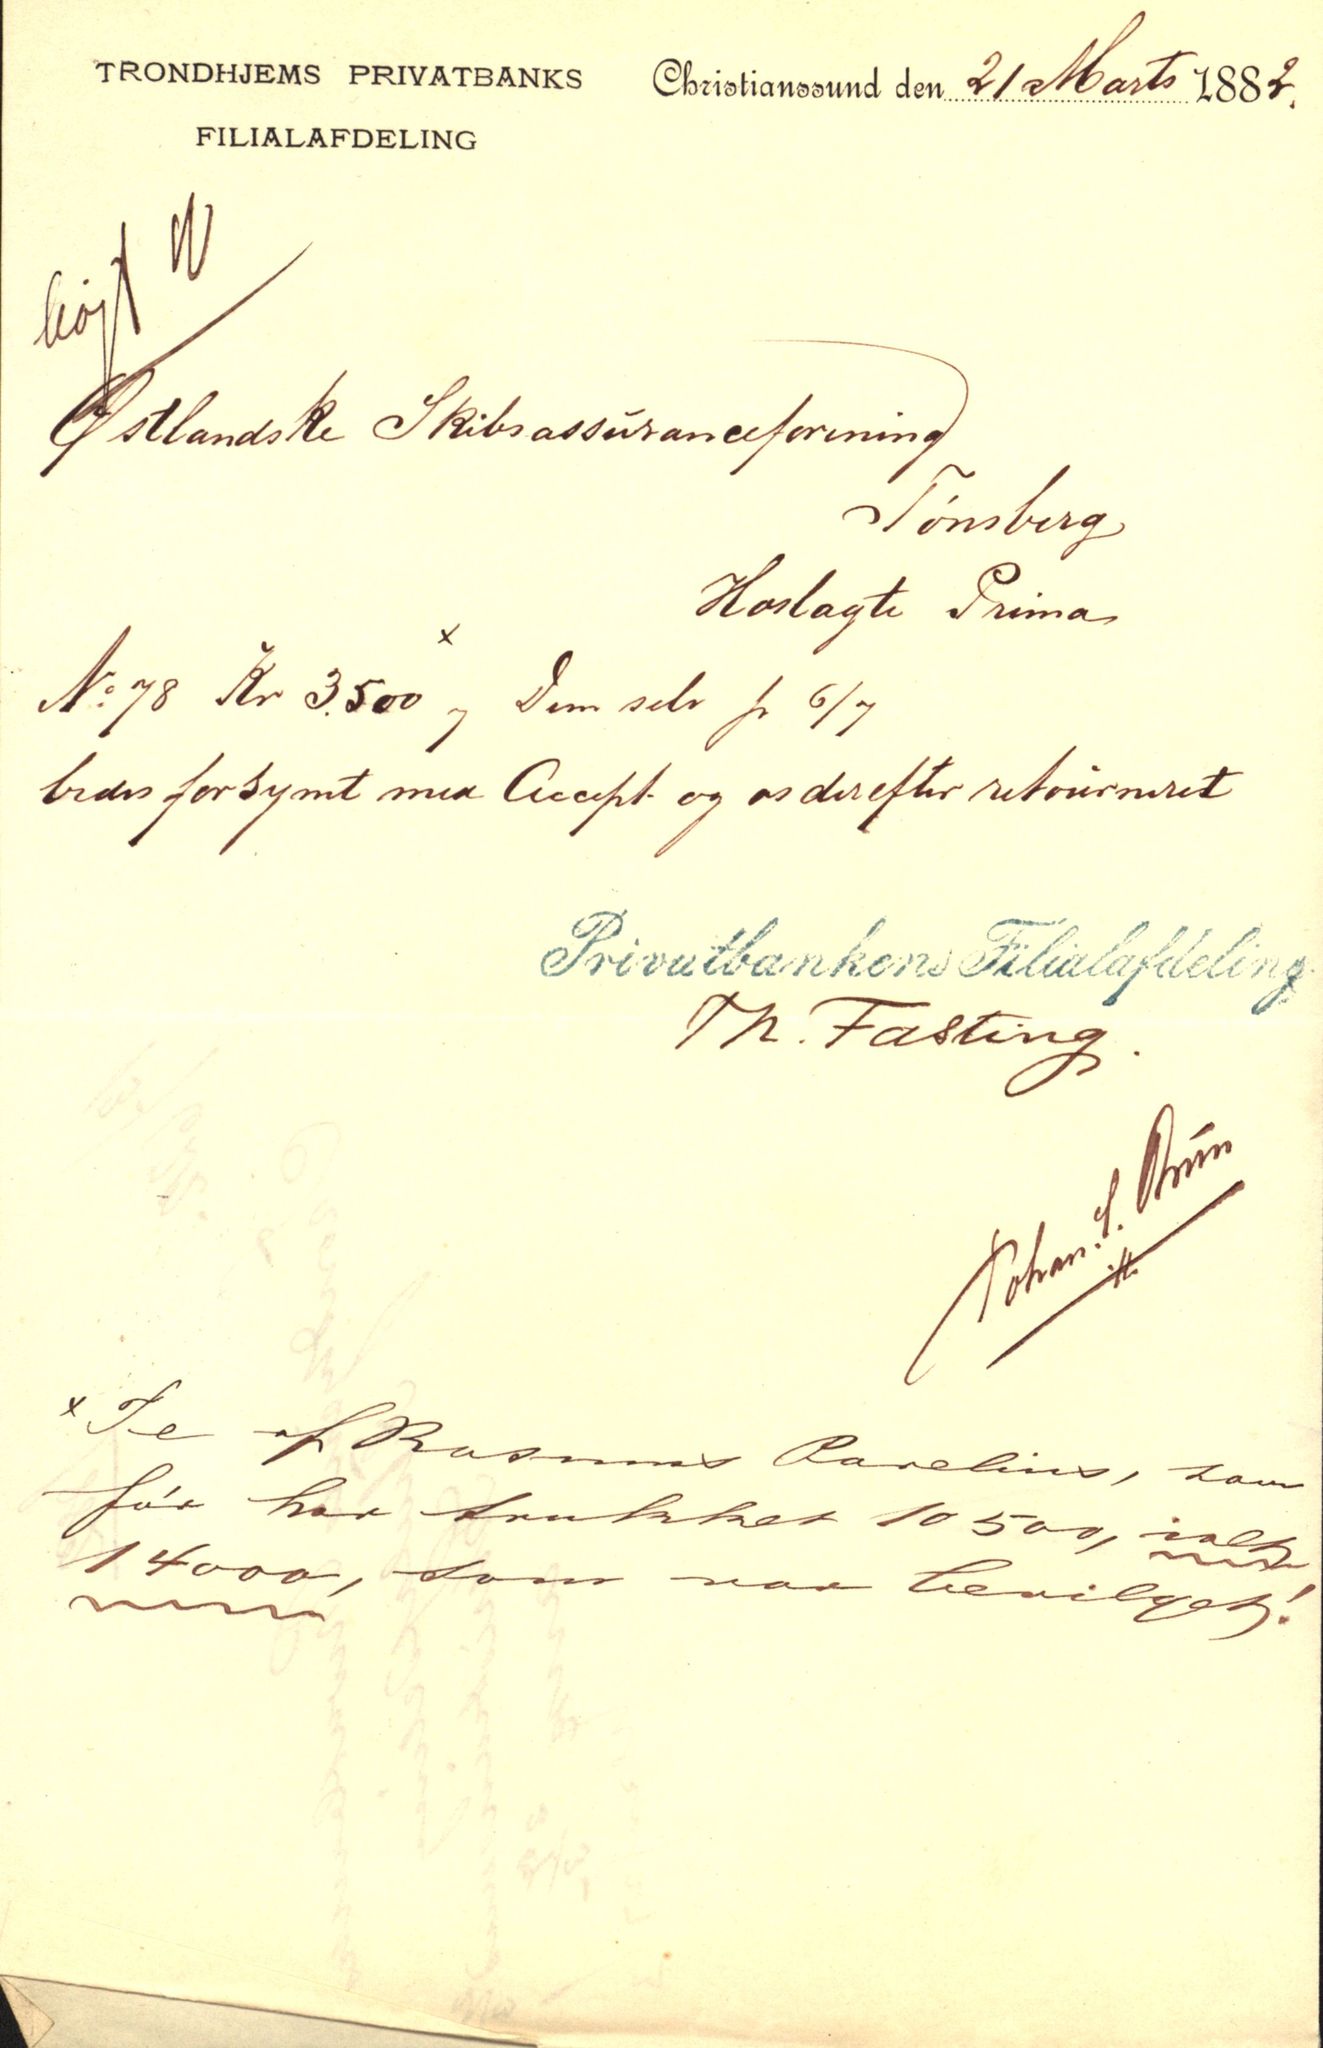 TRONDHJEMS PRIVATBANKS
FILIALAFDELING
Christianssund den 21 Marts 1882.
Østlandske Skibsassuranceforening
Tönsberg
Hoslagte Prima
No: 78 Kr 3.500 x Dem selv pr 6/7
bedes forsynt med Accept og os derefter retourneret
Privatbankens Filialafdeling
Th. Fasting.
Johan. S. Brun
x af Rasmus Parelius, som
før har trukket 10500, ialt
14000, som var bevilget!